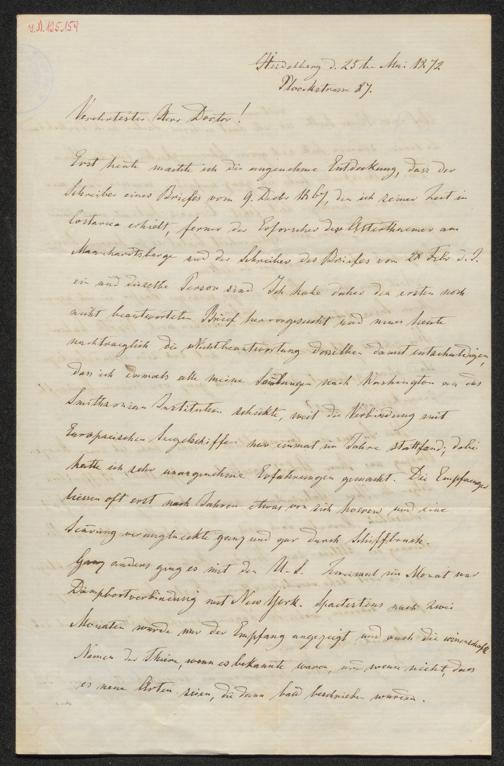 I.N. 125.154
Heidelberg d. 25ten Mai 1872
Plöckstrasse 87.
Verehrtester Herr Doctor!
Erst heute machte ich die angenehme Entdeckung, dass der
Schreiber eines Briefes vom 9. Decbr 1867, den ich seiner Zeit in
Costarica erhielt, ferner der Erforscher des
Mannhardtsberge und der Schreiber des Briefes vom 28 Febr d. J.
ein und dieselbe Person sind. Ich habe daher den ersten noch
nicht beantworteten Brief hervorgesucht und muss heute
nachtraeglich die Nichtbeantwortung desselben damit entschuldigen,
dass ich damals alle meine Sendungen nach Washington an das
Smithsonian Institution schickte, weil die Verbindung mit
Europaeischen Seegelschiffen nur einmal im Jahre stattfand; dabei
hatte ich sehr unangenehme Erfahrungen gemacht. Die Empfaenger
liessen oft erst nach Jahren etwas von sich hoeren und eine
Sendung verunglueckte ganz und gar durch Schiffbruch.
Ganz anders ging es mit den U. S. im Monat war
Dampfbootverbindung mit New York. Spaetestens nach zwei
Monaten wurde mir der Empfang angezeigt und auch die wissenschaftl
Namen der Thiere, wenn es bekannte waren, und wenn nicht, dass
es neue Arten seien, die dann bald beschrieben wurden.